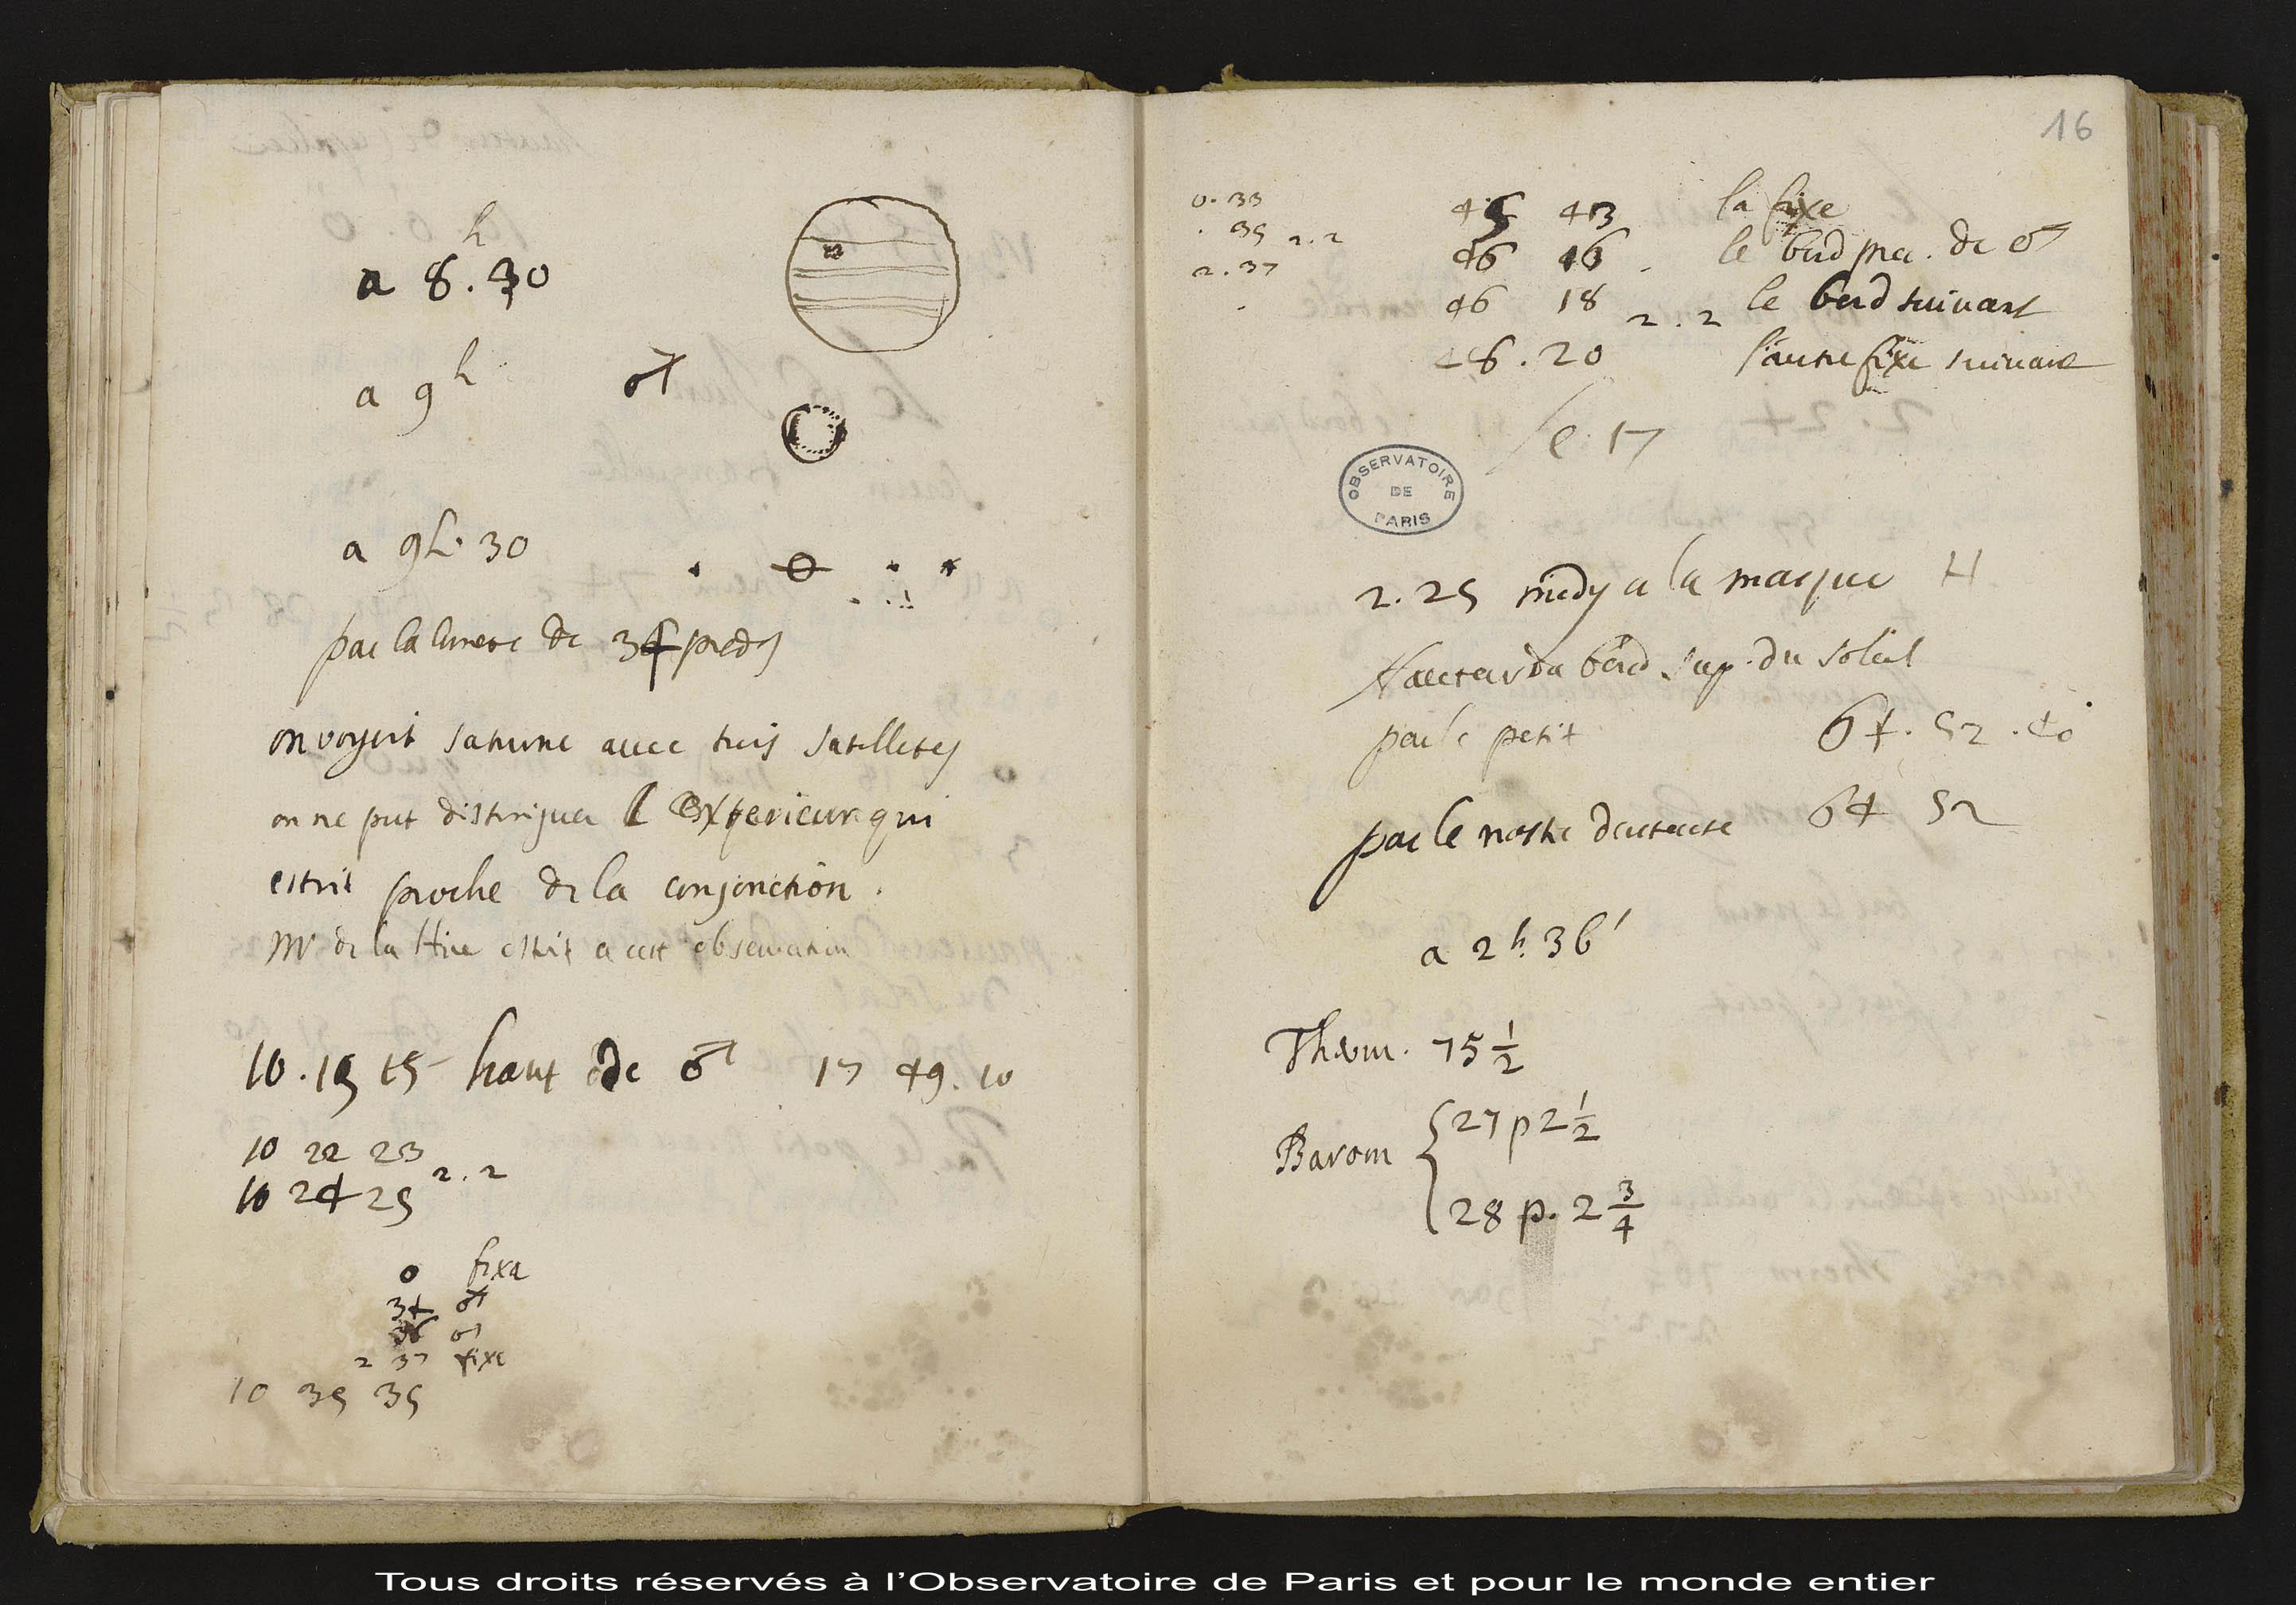 a 8.h 30
a 9h ♂
a 9h. 30
par la lunete de 34 pieds
on voyoit saturne avec trois satellites
on ne put distinguer l exterieur qui
estoit proche de la conjonction.
Mr de la Hire estoit a cett observation
10. 19 15 haut de ♂ 17 49. 10
10 22 23
2. 2
10 24 25
0 fixa
34 ♂
36 ♂
2 37 fixe
10 35 35
16
0. 33 45 43 la fixe
. 35 2. 2 46 16 . le bord pre. de ♂
2. 37 46 18 2. 2 le bord suivant
48. 20 l'autre fixe suivante
le 17
OBSERVATOIRE DE PARIS
2. 25 midy a la marque H
Hauteur du bord sup. du soleil
par le petit 64. 52. 40
par le nostre 64 52
a 2h. 36'
Therm. 75 1/2
Barom { 27 p 2 1/2
28 p. 2 3/4
Tous droits réservés à l'Observatoire de Paris et pour le monde entier